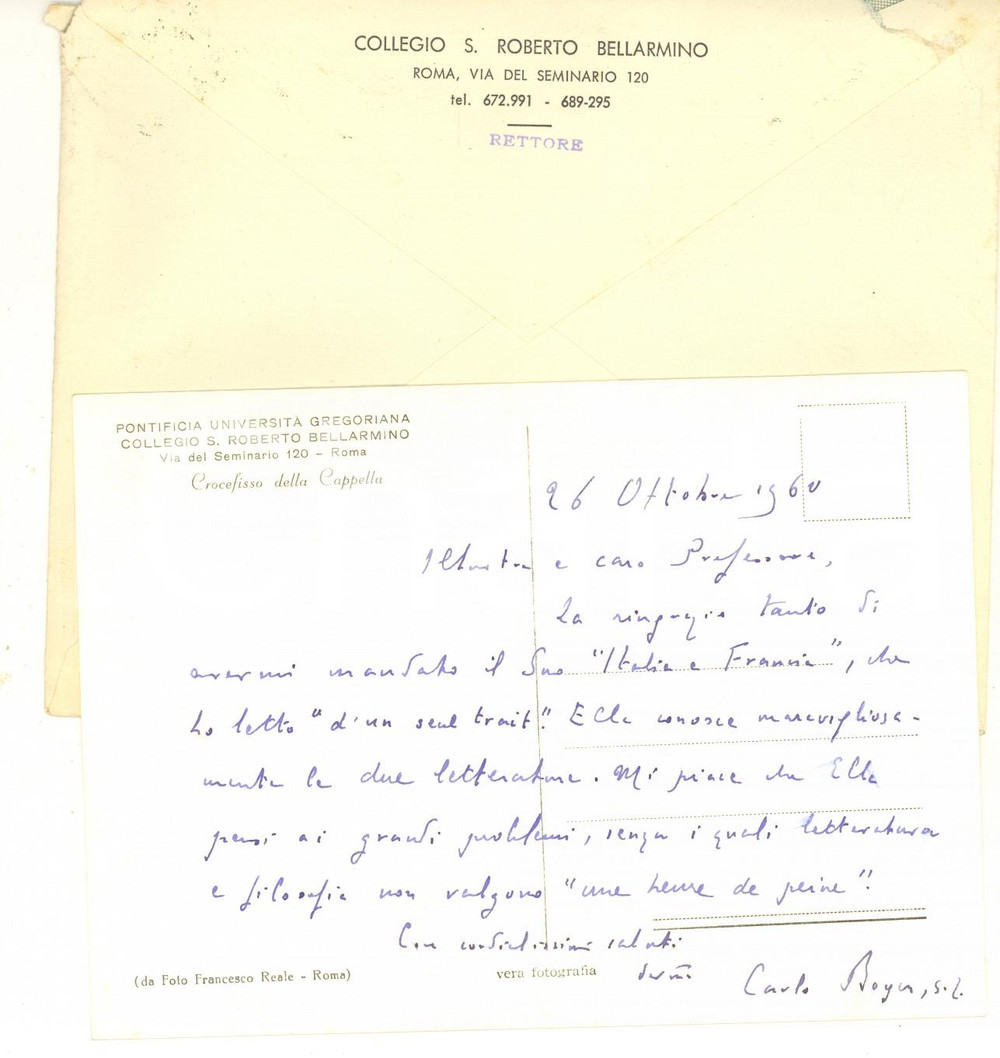 COLLEGIO S. ROBERTO BELLARMINO
ROMA, VIA DEL SEMINARIO 120
tel. 672.991 - 689-295
RETTORE
PONTIFICIA UNIVERSITÀ GREGORIANA
COLLEGIO S. ROBERTO BELLARMINO
Via del Seminario 120 - Roma
Crocefisso della Cappella
26 Ottobre 1960
Illustre e caro Professore,
La ringrazio tanto di
avermi mandato il Suo "Italia e Francia", che
ho letto "d'un seul trait". Ella conosce maravigliosa-
mente le due letterature. Mi piace che Ella
pensi ai grandi problemi, senza i quali letteratura
e filosofia non valgono "une heure de peine".
Con cordialissimi saluti
dev.mo
Carlo Boyer, s.j.
(da Foto Francesco Reale - Roma)
vera fotografia